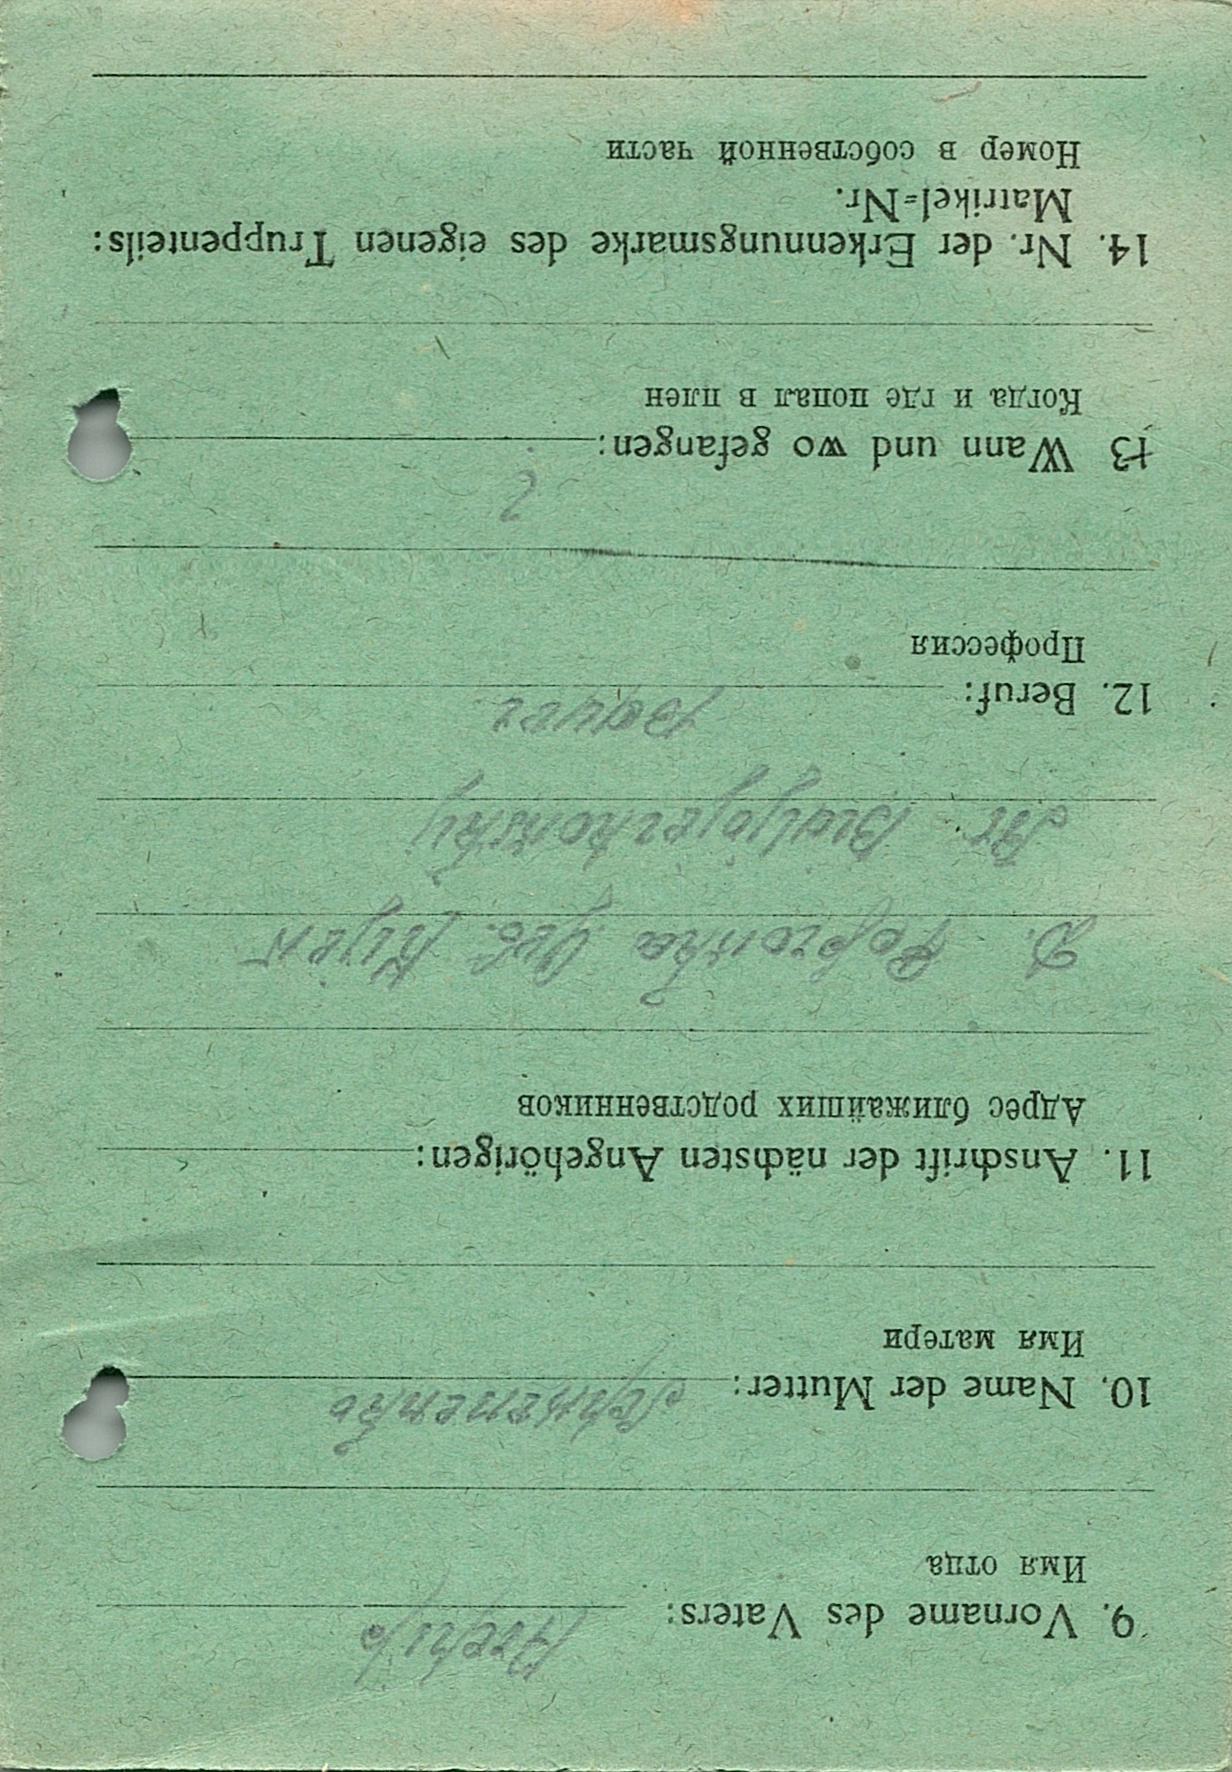 9. Vorname des Vaters:
Имя отца
10. Name der Mutter:
Имя матери
11. Anschrift der nächsten Angehörigen:
Адрес ближайших родственников
D.
12. Beruf: Bauer
Профессия
?
13 Wann und wo gefangen:
Когда и где попал в плен
14. Nr. der Erkennungsmarke des eigenen Truppenteils:
Matrikel=Nr.
Номер в собственной части